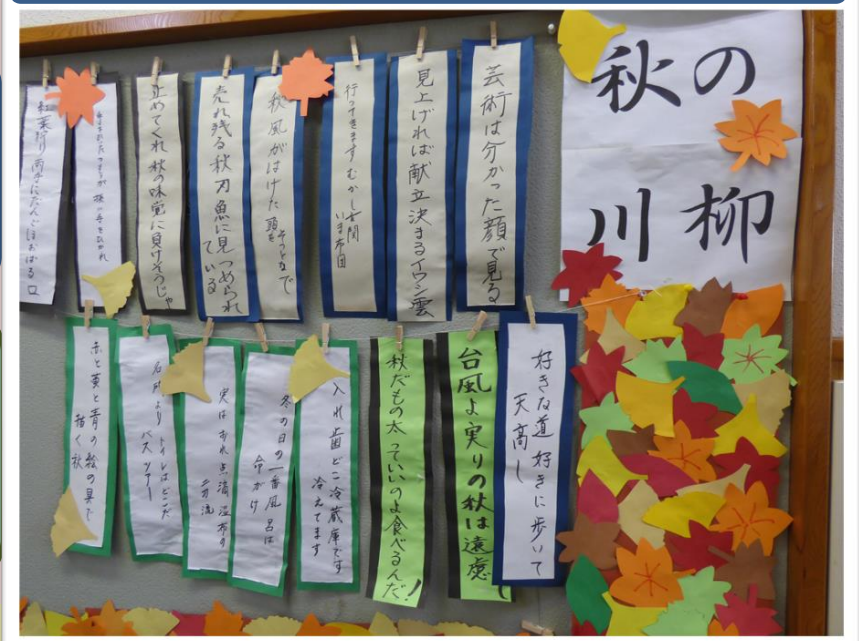 秋の
川柳
芸術は分かった顔で見る
見上げれば献立決まるイワシ雲
行ってきますむかし玄関
いま布団
秋風がはけた頭を
売れ残る秋刀魚に見つめられ
ている
止めてくれ秋の味覚に負けそうじゃ
紅葉狩り両手にだんごほおばる口
好きな道好きに歩いて
天高し
台風よ実りの秋は遠慮
秋だもの太っていいのよ食べるんだ!
入れ歯どこ冷蔵庫です
冷えてます
冬の日の一番風呂は
命がけ
実は
二刀流
名所よりトイレはどこだ
バスツアー
赤と黄と青の絵の具で
描く秋